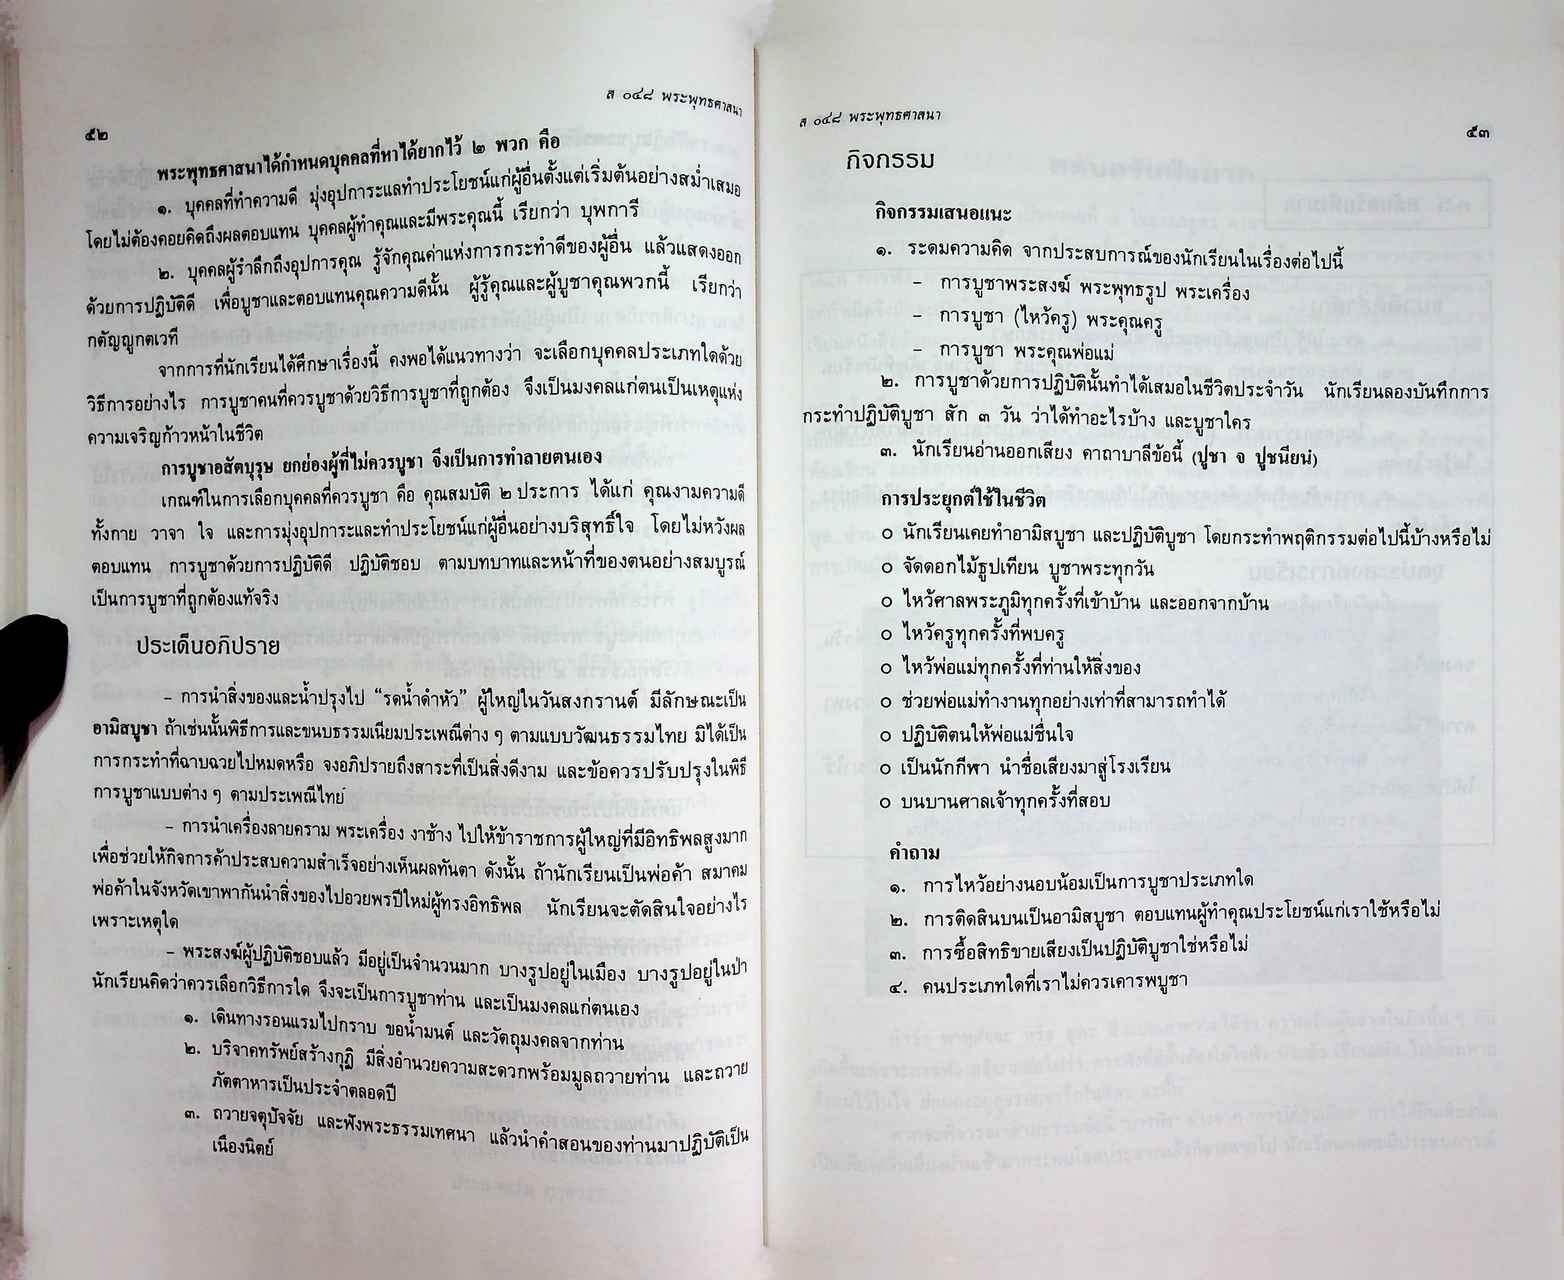 ส ๐๔๘ พระพุทธศาสนา
๕๒
พระพุทธศาสนาได้กำหนดบุคคลที่หาได้ยากไว้ ๒ พวก คือ
๑. บุคคลที่ทำความดี มุ่งอุปการะแลทำประโยชน์แก่ผู้อื่นตั้งแต่เริ่มต้นอย่างสม่ำเสมอ
โดยไม่ต้องคอยคิดถึงผลตอบแทน บุคคลผู้ทำคุณและมีพระคุณนี้ เรียกว่า บุพการี
๒. บุคคลผู้รำลึกถึงอุปการคุณ รู้จักคุณค่าแห่งการกระทำดีของผู้อื่น แล้วแสดงออก
ด้วยการปฏิบัติดี เพื่อบูชาและตอบแทนคุณความดีนั้น ผู้รู้คุณและผู้บูชาคุณพวกนี้ เรียกว่า
กตัญญูกตเวที
จากการที่นักเรียนได้ศึกษาเรื่องนี้ คงพอได้แนวทางว่า จะเลือกบุคคลประเภทใดด้วย
วิธีการอย่างไร การบูชาคนที่ควรบูชาด้วยวิธีการบูชาที่ถูกต้อง จึงเป็นมงคลแก่ตนเป็นเหตุแห่ง
ความเจริญก้าวหน้าในชีวิต
การบูชาอสัตบุรุษ ยกย่องผู้ที่ไม่ควรบูชา จึงเป็นการทำลายตนเอง
เกณฑ์ในการเลือกบุคคลที่ควรบูชา คือ คุณสมบัติ ๒ ประการ ได้แก่ คุณงามความดี
ทั้งกาย วาจา ใจ และการมุ่งอุปการะและทำประโยชน์แก่ผู้อื่นอย่างบริสุทธิ์ใจ โดยไม่หวังผล
ตอบแทน การบูชาด้วยการปฏิบัติดี ปฏิบัติชอบ ตามบทบาทและหน้าที่ของตนอย่างสมบูรณ์
เป็นการบูชาที่ถูกต้องแท้จริง
ประเด็นอภิปราย
– การนำสิ่งของและน้ำปรุงไป “รดน้ำดำหัว” ผู้ใหญ่ในวันสงกรานต์ มีลักษณะเป็น
อามิสบูชา ถ้าเช่นนั้นพิธีการและขนบธรรมเนียมประเพณีต่าง ๆ ตามแบบวัฒนธรรมไทย มิได้เป็น
การกระทำที่ฉาบฉวยไปหมดหรือ จงอภิปรายถึงสาระที่เป็นสิ่งดีงาม และข้อควรปรับปรุงในพิธี
การบูชาแบบต่าง ๆ ตามประเพณีไทย
– การนำเครื่องลายคราม พระเครื่อง งาช้าง ไปให้ข้าราชการผู้ใหญ่ที่มีอิทธิพลสูงมาก
เพื่อช่วยให้กิจการค้าประสบความสำเร็จอย่างเห็นผลทันตา ดังนั้น ถ้านักเรียนเป็นพ่อค้า สมาคม
พ่อค้าในจังหวัดเขาพากันนำสิ่งของไปอวยพรปีใหม่ผู้ทรงอิทธิพล นักเรียนจะตัดสินใจอย่างไร
เพราะเหตุใด
– พระสงฆ์ผู้ปฏิบัติชอบแล้ว มีอยู่เป็นจำนวนมาก บางรูปอยู่ในเมือง บางรูปอยู่ในป่า
นักเรียนคิดว่าควรเลือกวิธีการใด จึงจะเป็นการบูชาท่าน และเป็นมงคลแก่ตนเอง
๑. เดินทางรอนแรมไปกราบ ขอน้ำมนต์ และวัตถุมงคลจากท่าน
๒. บริจาคทรัพย์สร้างกุฏิ มีสิ่งอำนวยความสะดวกพร้อมมูลถวายท่าน และถวาย
ภัตตาหารเป็นประจำตลอดปี
๓. ถวายจตุปัจจัย และฟังพระธรรมเทศนา แล้วนำคำสอนของท่านมาปฏิบัติเป็น
เนืองนิตย์
ส ๐๔๘ พระพุทธศาสนา
๕๓
กิจกรรม
กิจกรรมเสนอแนะ
๑. ระดมความคิด จากประสบการณ์ของนักเรียนในเรื่องต่อไปนี้
– การบูชาพระสงฆ์ พระพุทธรูป พระเครื่อง
– การบูชา (ไหว้ครู) พระคุณครู
– การบูชา พระคุณพ่อแม่
๒. การบูชาด้วยการปฏิบัตินั้นทำได้เสมอในชีวิตประจำวัน นักเรียนลองบันทึกการ
กระทำปฏิบัติบูชา สัก ๓ วัน ว่าได้ทำอะไรบ้าง และบูชาใคร
๓. นักเรียนอ่านออกเสียง คาถาบาลีข้อนี้ (ปูชา จ ปูชนียนํ)
การประยุกต์ใช้ในชีวิต
○ นักเรียนเคยทำอามิสบูชา และปฏิบัติบูชา โดยกระทำพฤติกรรมต่อไปนี้บ้างหรือไม่
○ จัดดอกไม้ธูปเทียน บูชาพระทุกวัน
○ ไหว้ศาลพระภูมิทุกครั้งที่เข้าบ้าน และออกจากบ้าน
○ ไหว้ครูทุกครั้งที่พบครู
○ ไหว้พ่อแม่ทุกครั้งที่ท่านให้สิ่งของ
○ ช่วยพ่อแม่ทำงานทุกอย่างเท่าที่สามารถทำได้
○ ปฏิบัติตนให้พ่อแม่ชื่นใจ
○ เป็นนักกีฬา นำชื่อเสียงมาสู่โรงเรียน
○ บนบานศาลเจ้าทุกครั้งที่สอบ
คำถาม
๑. การไหว้อย่างนอบน้อมเป็นการบูชาประเภทใด
๒. การติดสินบนเป็นอามิสบูชา ตอบแทนผู้ทำคุณประโยชน์แก่เราใช้หรือไม่
๓. การซื้อสิทธิขายเสียงเป็นปฏิบัติบูชาใช่หรือไม่
๔. คนประเภทใดที่เราไม่ควรเคารพบูชา